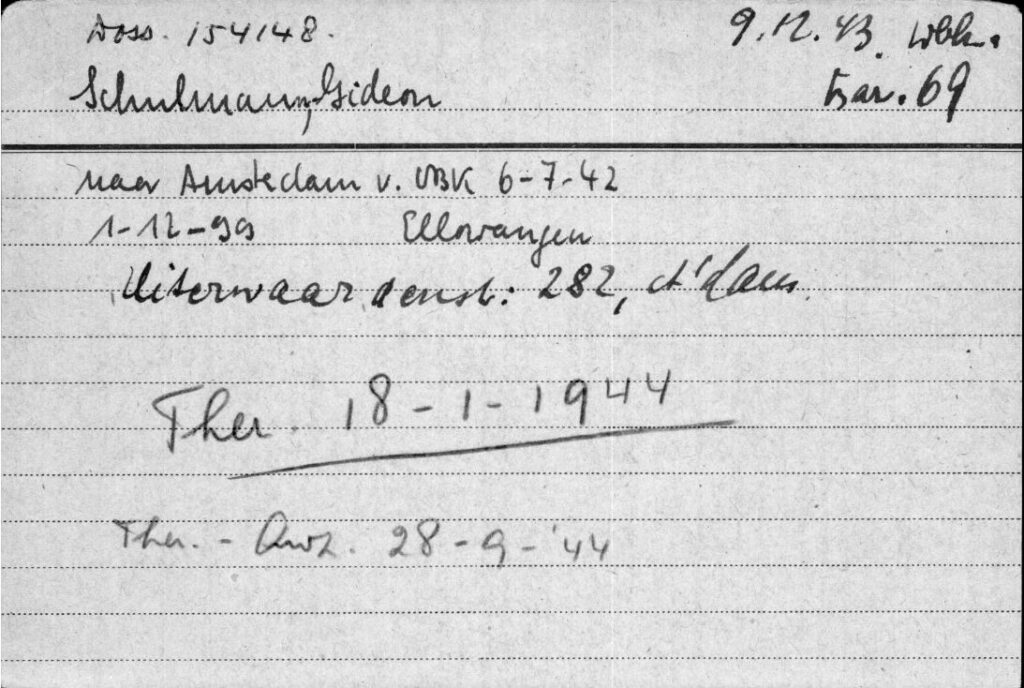 Doss. 154148. 9.12.43. Wbk.
Schulmann, Gideon bar. 69
naar Amsterdam v. WBK 6-7-42
1-12-99 Ellwangen
Uiterwaardenst: 282, A'dam.
Ther. 18-1-1944
Ther. - Auz. 28-9-'44